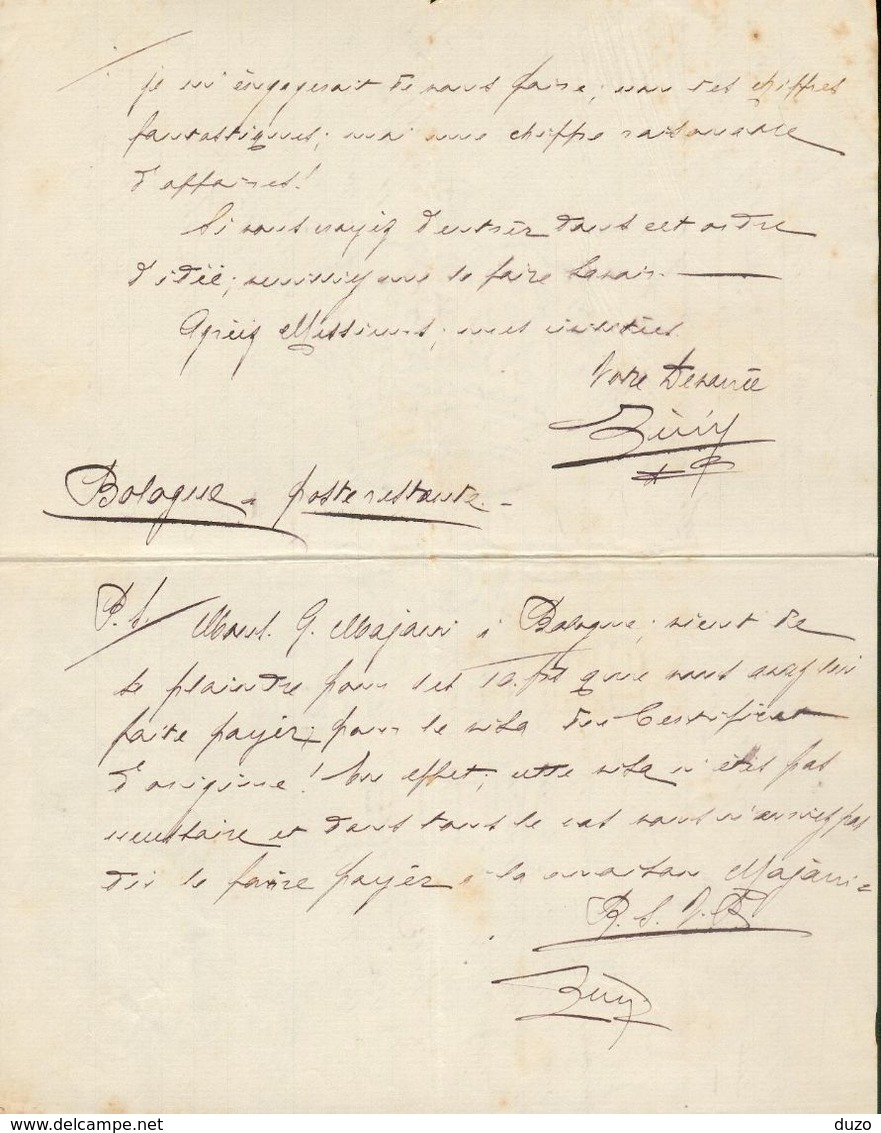 je m'engagerait de vous faire; non des chiffres
fantastiques; mai une chiffre raisonable
d'affaires!
Si vous d'entrer dans cet ordre
d'idée; veuillez me le faire savoir
Agréez Messieurs; mes
Votre Devouée
Bologne - poste restante.-
P.S. Mons. G. Majani à Bologne; vient de
se plaindre pour les 10. que vous avez lui
faite payér; pour le visa du Certificat
d'origine! En effet; cette visa n'étés pas
necessaire et dans tous le cas vous n'auriez pas
dû le faire payér à la maison Majani=
R.S.V.P.
duzo